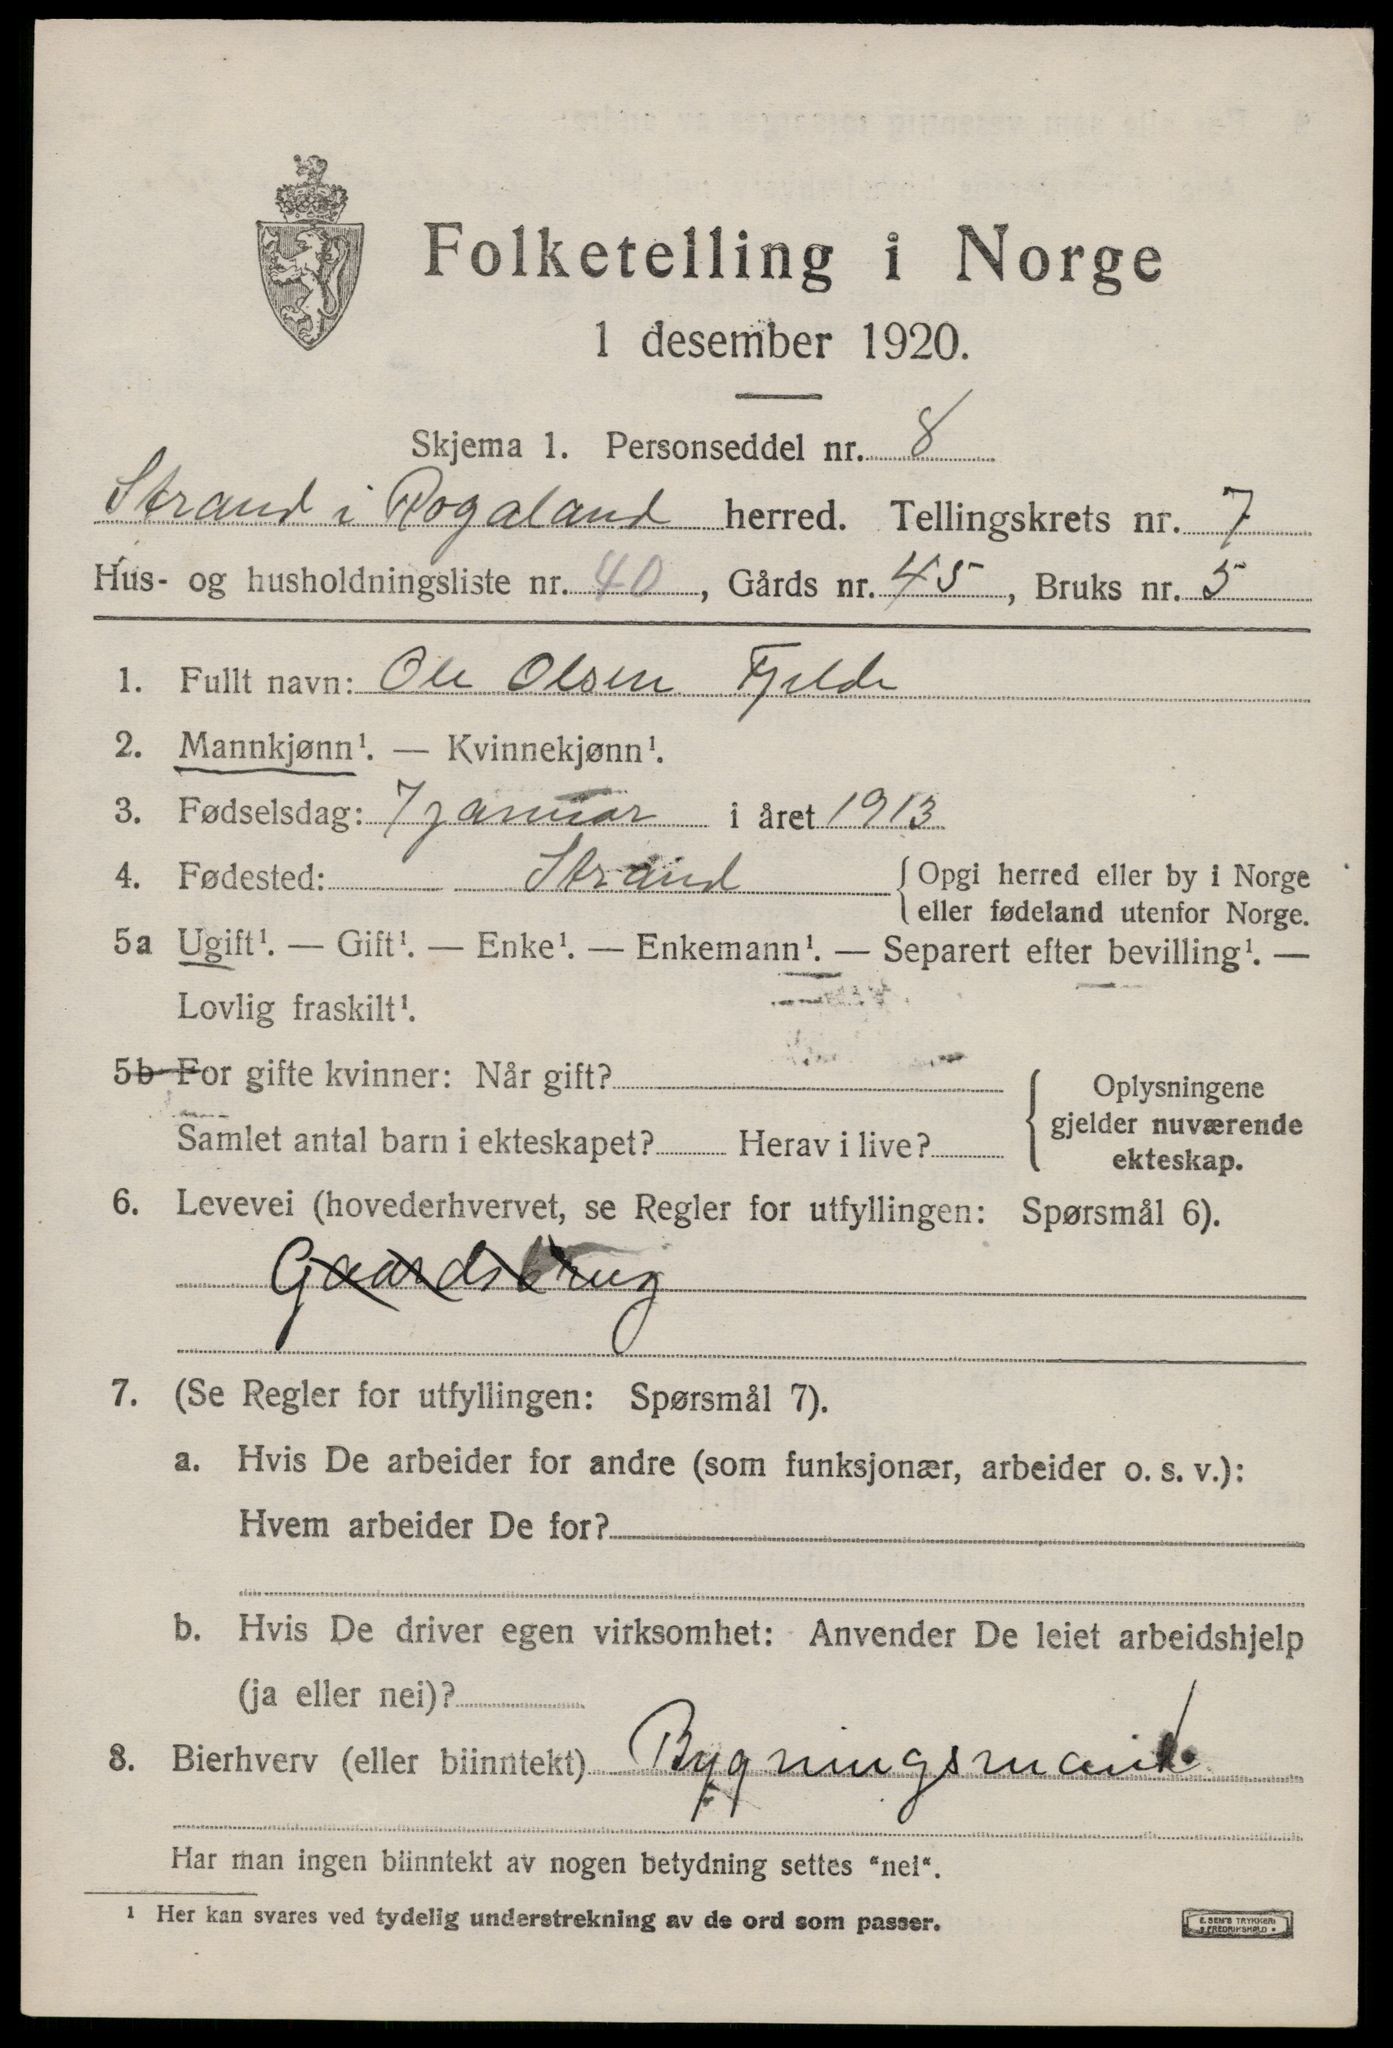 Folketelling i Norge
1 desember 1920.
Skjema 1. Personseddel nr. 8
Strand i Rogaland herred. Tellingskrets nr. 7
Hus- og husholdningsliste nr. 40, Gårds nr. 45, Bruks nr. 5
1. Fullt navn: Ole Olsen Fjelde
2. Mannkjønn¹. — Kvinnekjønn¹.
3. Fødselsdag: 7 januar i året 1913
4. Fødested: Strand
Opgi herred eller by i Norge
eller fødeland utenfor Norge.
5a Ugift¹. — Gift¹. — Enke¹. — Enkemann¹. — Separert efter bevilling¹. —
Lovlig fraskilt¹.
5b For gifte kvinner: Når gift?
Samlet antal barn i ekteskapet? Herav i live?
Oplysningene
gjelder nuværende
ekteskap.
6. Levevei (hovederhvervet, se Regler for utfyllingen: Spørsmål 6).
Gaardsbrug
7. (Se Regler for utfyllingen: Spørsmål 7).
a. Hvis De arbeider for andre (som funksjonær, arbeider o. s. v.):
Hvem arbeider De for?
b. Hvis De driver egen virksomhet: Anvender De leiet arbeidshjelp
(ja eller nei)?
8. Bierhverv (eller biinntekt) Bygningsmand
Har man ingen biinntekt av nogen betydning settes "nei".
¹ Her kan svares ved tydelig understrekning av de ord som passer.
E. SEM'S TRYKKERI
FREDRIKSHALD